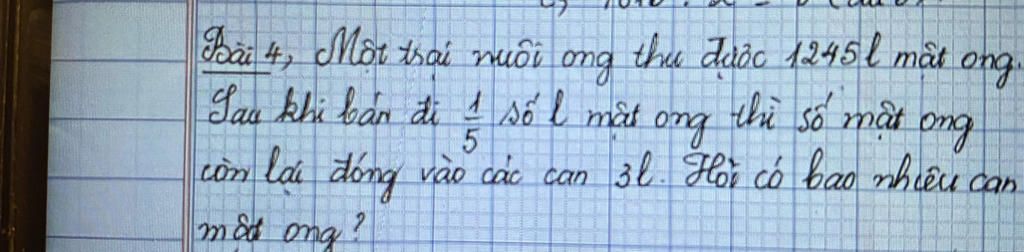 Bài 4, Một trại nuôi ong thu được 1245l mật ong.
Sau khi bán đi 1/5 số l mật ong thì số mật ong
còn lại đóng vào các can 3l. Hỏi có bao nhiêu can
mật ong?